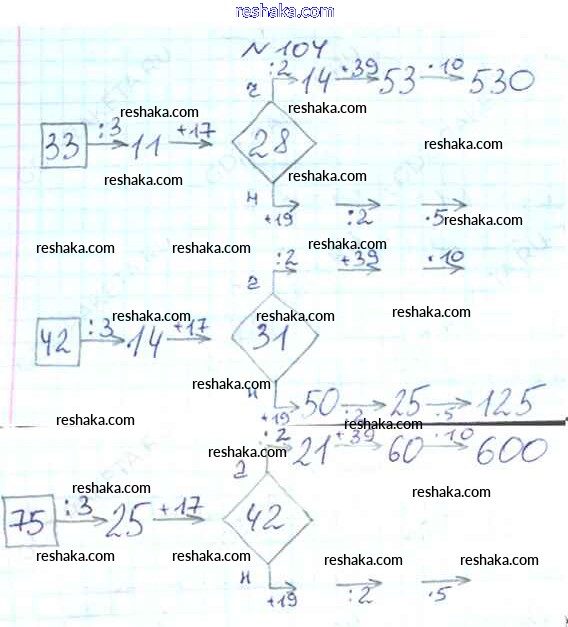 reshaka.com
N 104
:2 14 +39 53 ·10 530
ч
reshaka.com reshaka.com
33 :3 11 +17 28
reshaka.com
reshaka.com
н
+19 :2 ·5 reshaka.com
reshaka.com reshaka.com reshaka.com
:2 +39 ·10
reshaka.com reshaka.com reshaka.com
42 :3 14 +17 31
reshaka.com
н
+19 50 :2 25 ·5 125
reshaka.com reshaka.com
:2 21 +39 60 ·10 600
reshaka.com
reshaka.com reshaka.com
75 :3 25 +17 42
reshaka.com reshaka.com reshaka.com reshaka.com
н
+19 :2 ·5